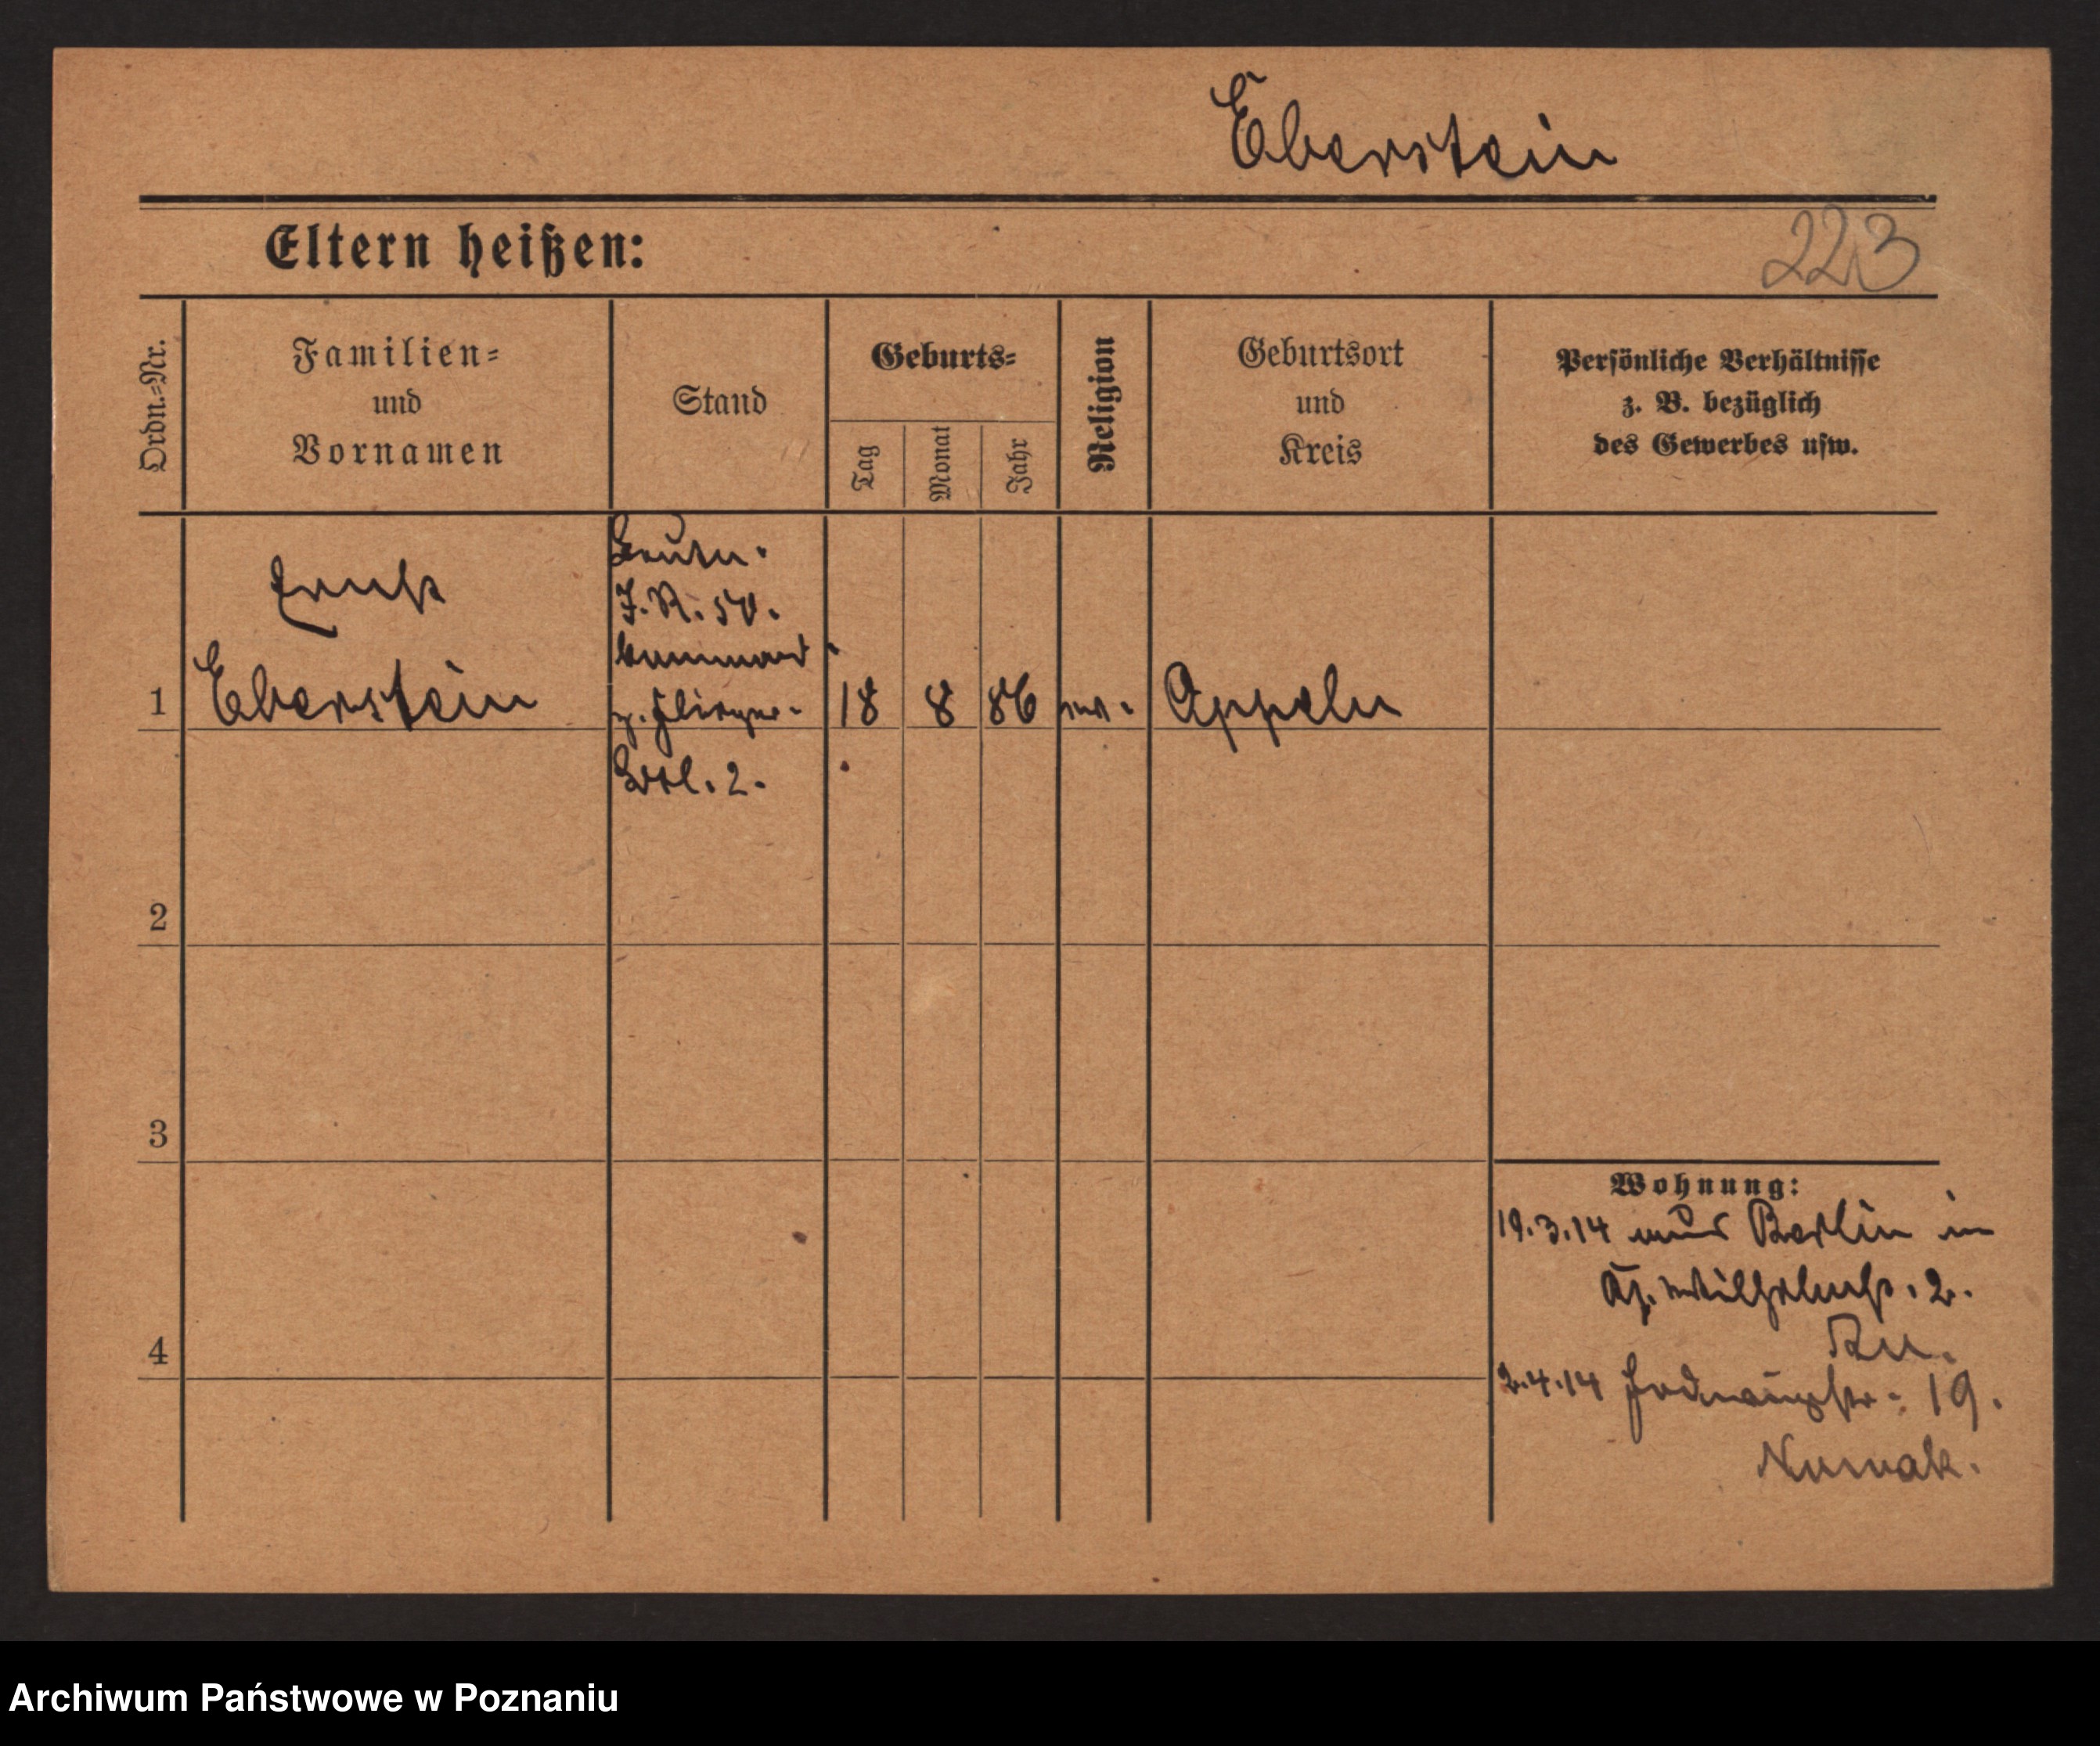 Eberstein
Eltern heißen:
223
Ordn.=Nr.
Familien=
und
Vornamen
Stand
Geburts=
Tag
Monat
Jahr
Religion
Geburtsort
und
Kreis
Persönliche Verhältnisse
z. B. bezüglich
des Gewerbes usw.
Ernst
Eberstein
Leutn.
J. R. 50.
kommand.
z. Flieger-
Btl. 2.
1
18
8
86
ev.
Oppeln
2
3
4
Wohnung:
19.3.14 aus Berlin in
Wilhelmstr. 2.
2.4.14 19.
Nowak.
Archiwum Państwowe w Poznaniu